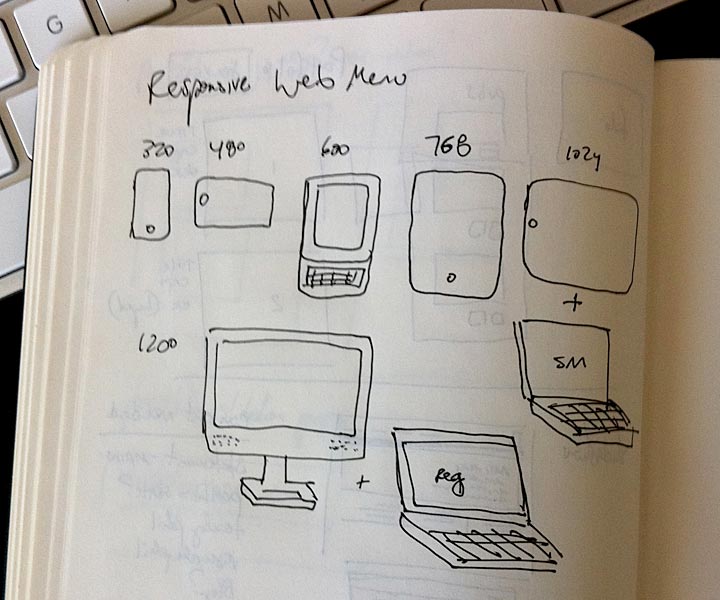 Responsive Web Menu
320 480 600 768 1024
+
1200
SM
+
reg
G
M